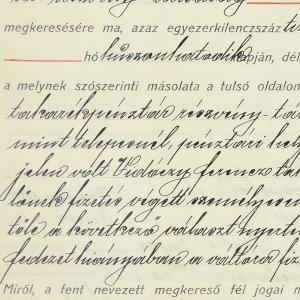 megkeresésére ma, azaz egyezerkilenczszáz
hó huszonhatodik napján, dél
a melynek szószerinti másolata a tulsó oldalon
takarékpénztár részvény-tár
mint telepesnél, pénztári hely
jelen volt Vidóczy Ferencz
lönek fizetés végett személyesen
tőle a következő választ nyerte
fedezet hiányában a váltóra fiz
Miről, a fent nevezett megkereső fél jogai